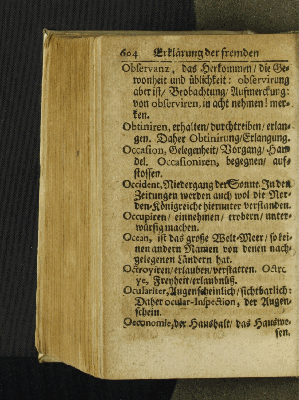 604 Erklärung der fremden
Observanz, das Herkommen/ die Ge-
wonheit und üblichkeit: observirung
aber ist/ Beobachtung/ Aufmerckung:
von observiren, in acht nehmen! mer-
ken.
Obtiniren, erhalten/ durchtreiben/ erlan-
gen. Daher Obtinirung/ Erlangung.
Occasion, Gelegenheit/ Vorgang/ Han-
del. Occasioniren, begegnen/ auf-
stossen.
Occident, Niedergang der Sonne. In den
Zeitungen werden auch wol die Nor-
den-Königreiche hierunter verstanden.
Occupiren/ einnehmen/ erobern/ unter-
würfig machen.
Ocean, ist das große Welt-Meer/ so kei-
nen andern Namen von denen nach-
gelegenen Ländern hat.
Octroyiren/ erlauben/ verstatten. Octro
ye, Freyheit/ erlaubnüß.
Oculariter, Augenscheinlich/ sichtbarlich:
Daher ocular-Inspection, der Augen-
schein.
Oeconomie, der Haushalt/ das Hauswe-
sen.